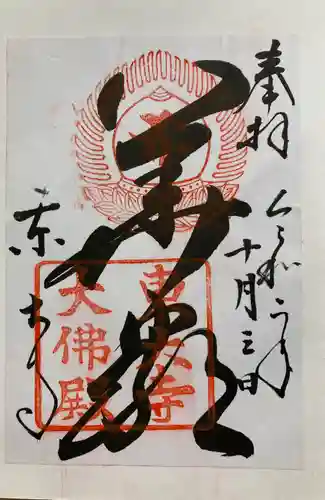 奉拝
令和二年
十月三日
華嚴
東大寺
東大寺
大佛殿